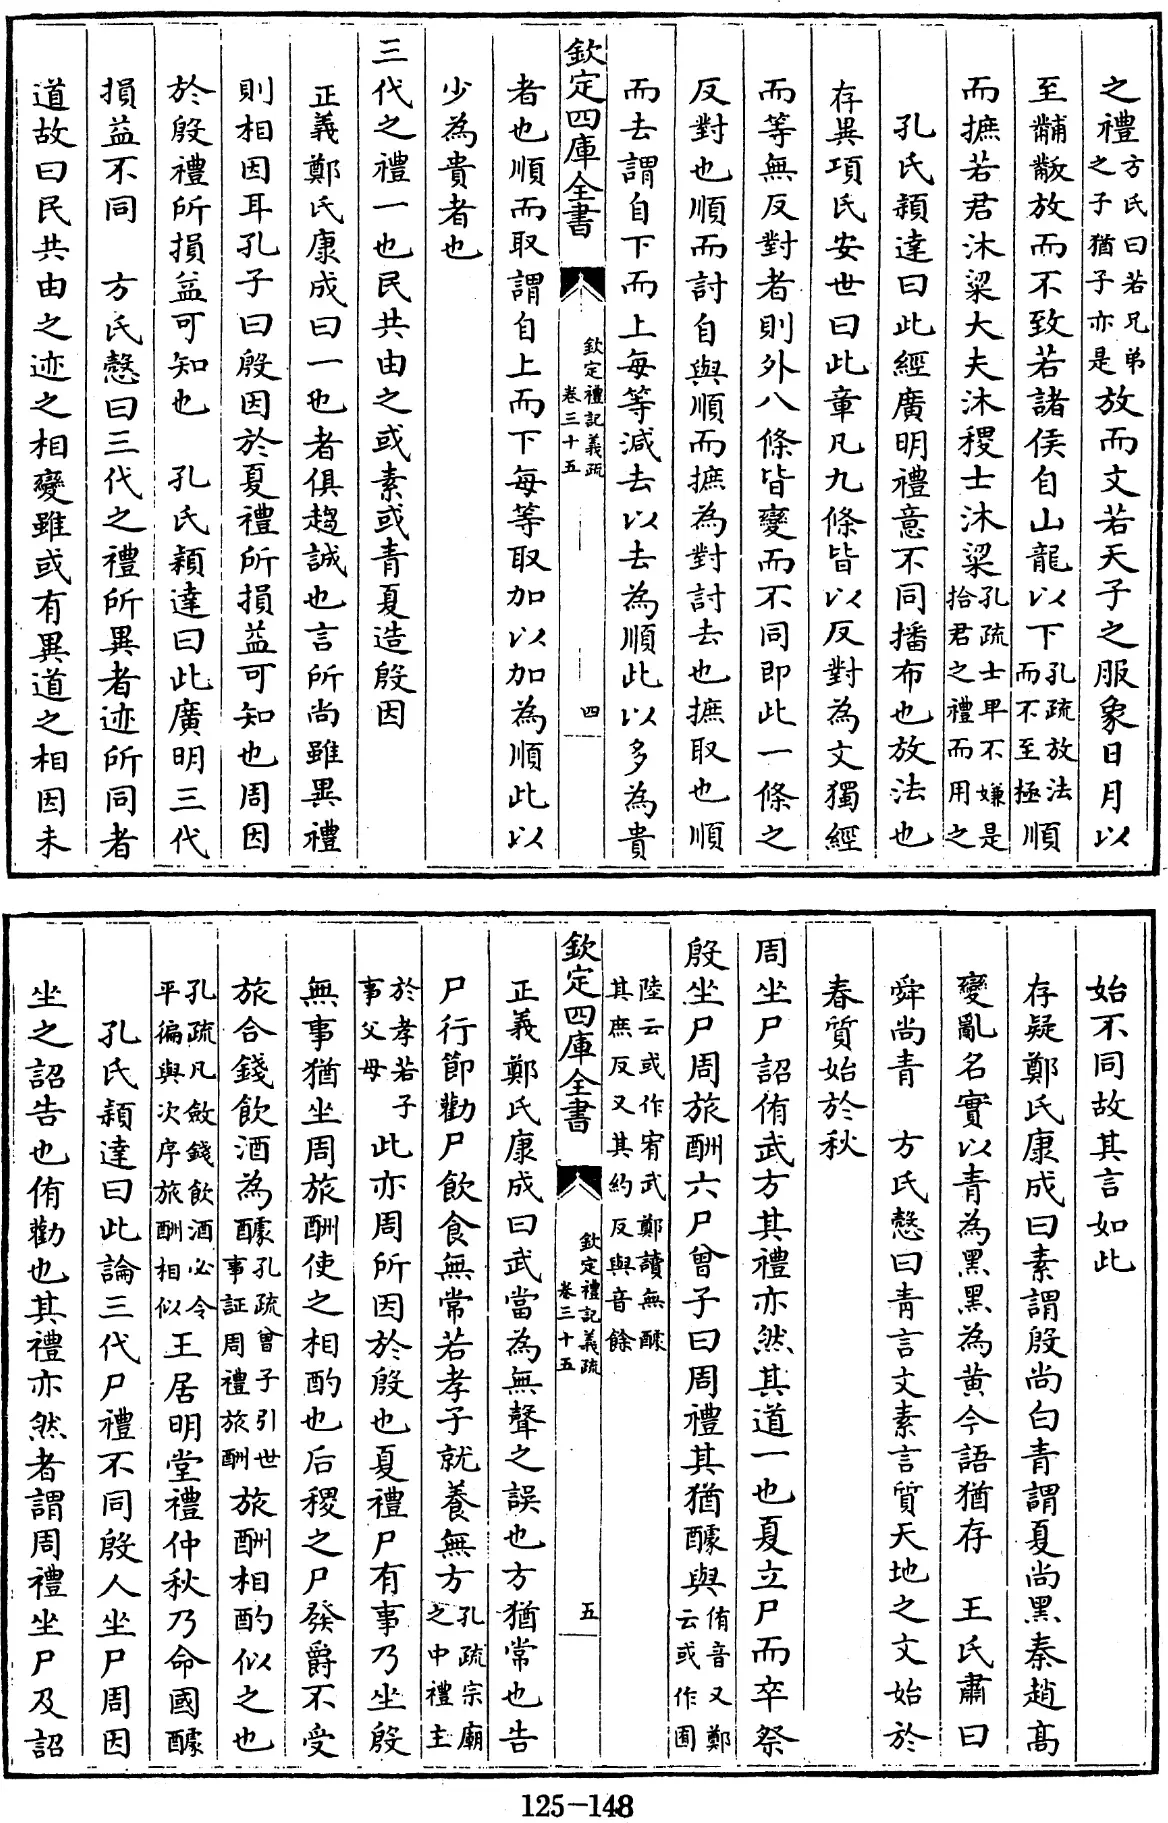 之禮方氏曰若兄弟之子猶子亦是放而文若天子之服象日月以
至黼黻放而不致若諸侯自山龍以下孔疏放法而不至極順
而摭若君沐粱大夫沐稷士沐粱孔疏士卑不嫌是拾君之禮而用之
孔氏穎達曰此經廣明禮意不同播布也放法也
存異項氏安世曰此章凡九條皆以反對為文獨經
而等無反對者則外八條皆變而不同即此一條之
反對也順而討自與順而摭為對討去也摭取也順
而去謂自下而上每等減去以去為順此以多為貴
欽定四庫全書
欽定禮記義疏
卷三十五
四
者也順而取謂自上而下每等取加以加為順此以
少為貴者也
三代之禮一也民共由之或素或青夏造殷因
正義鄭氏康成曰一也者俱趨誠也言所尚雖異禮
則相因耳孔子曰殷因於夏禮所損益可知也周因
於殷禮所損益可知也 孔氏穎達曰此廣明三代
損益不同 方氏慤曰三代之禮所異者迹所同者
道故曰民共由之迹之相變雖或有異道之相因未
始不同故其言如此
存疑鄭氏康成曰素謂殷尚白青謂夏尚黑秦趙髙
變亂名實以青為黑黑為黄今語猶存 王氏肅曰
舜尚青 方氏慤曰青言文素言質天地之文始於
春質始於秋
周坐尸詔侑武方其禮亦然其道一也夏立尸而卒祭
殷坐尸周旅酬六尸曾子曰周禮其猶醵與侑音又鄭云或作囿
陸云或作宥武鄭讀無醵其庶反又其約反與音餘
欽定四庫全書
欽定禮記義疏
卷三十五
五
正義鄭氏康成曰武當為無聲之誤也方猶常也告
尸行節勸尸飲食無常若孝子就養無方孔疏宗廟之中禮主
於孝若子事父母此亦周所因於殷也夏禮尸有事乃坐殷
無事猶坐周旅酬使之相酌也后稷之尸發爵不受
旅合錢飲酒為醵孔疏曾子引世事証周禮旅酬旅酬相酌似之也
孔疏凡斂錢飲酒必令平徧與次序旅酬相似王居明堂禮仲秋乃命國醵
孔氏穎達曰此論三代尸禮不同殷人坐尸周因
坐之詔告也侑勸也其禮亦然者謂周禮坐尸及詔
125-148